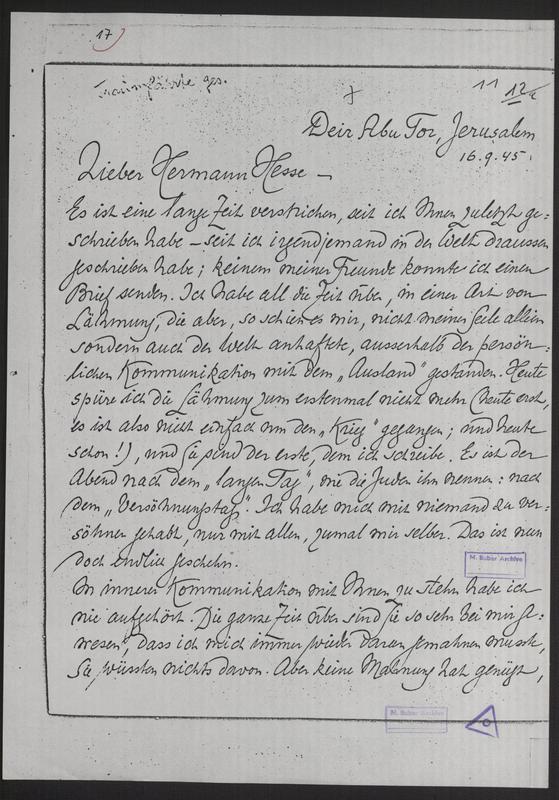 17)
ges.
11 12
Deir Abu Tor, Jerusalem
16.9.45.
Lieber Hermann Hesse –
Es ist eine lange Zeit verstrichen, seit ich Ihnen zuletzt ge-
schrieben habe – seit ich irgendjemand in der Welt draussen
geschrieben habe; keinem meiner Freunde konnte ich einen
Brief senden. Ich habe all die Zeit über, in einer Art von
Lähmung, die aber, so schien es mir, nicht meiner Seele allein
sondern auch der Welt anhaftete, ausserhalb der persön-
lichen Kommunikation mit dem „Ausland" gestanden. Heute
spüre ich die Lähmung zum erstenmal nicht mehr (heute erst,
es ist also nicht einfach um den „Krieg" gegangen; und heute
schon!), und Sie sind der erste, dem ich schreibe. Es ist der
Abend nach dem „langen Tag", wie die Juden ihn nennen: nach
dem „Versöhnungstag". Ich habe mich mit niemand zu ver-
söhnen gehabt, nur mit allen, zumal mir selber. Das ist nun
doch endlich geschehn.
M. Buber Archive
In innerer Kommunikation mit Ihnen zu stehn habe ich
nie aufgehört. Die ganze Zeit über sind Sie so sehr bei mir ge-
wesen, dass ich mich immer wieder daran gemahnen musste,
Sie wüssten nichts davon. Aber keine Mahnung hat genügt,
M. Buber Archive